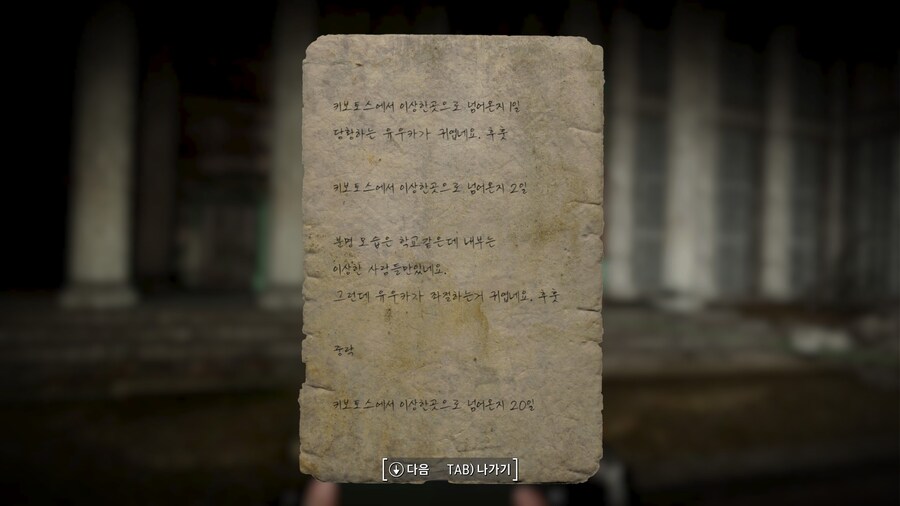 키보토스에서 이상한곳으로 넘어온지 1일
당황하는 유우카가 귀엽네요. 후훗
키보토스에서 이상한곳으로 넘어온지 2일
분명 모습은 학교같은데 내부는
이상한 사람들만있네요.
그런데 유우카가 좌절하는거 귀엽네요. 후훗
중략
키보토스에서 이상한곳으로 넘어온지 20일
다음 TAB) 나가기